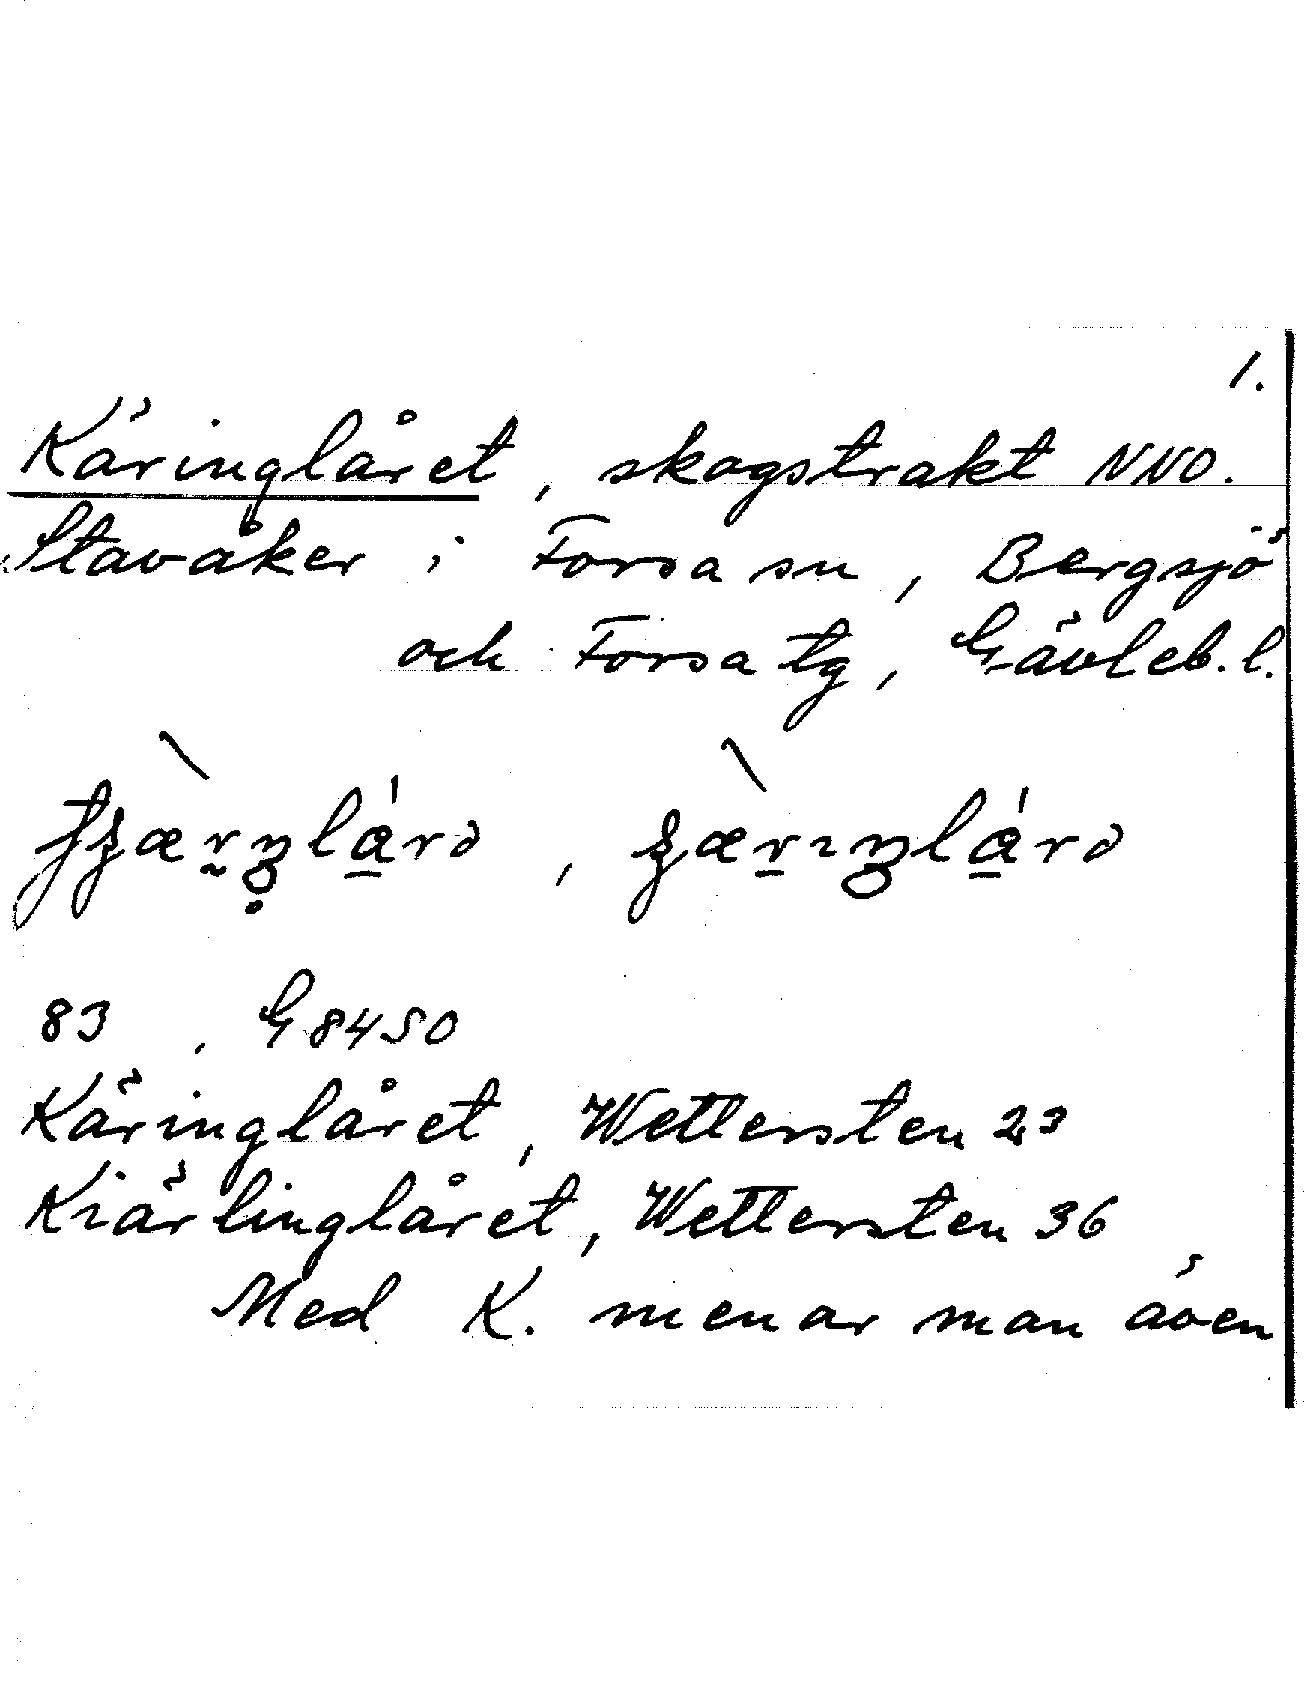 1.
Käringlåret, skogstrakt NNO.
Stavåker i Forsa sn, Bergsjö
och Forsa tg, Gävleb. l.
83 . G8450
Käringlåret, Wettersten 23
Kiärlinglåret, Wettersten 36
Med K. menar man även